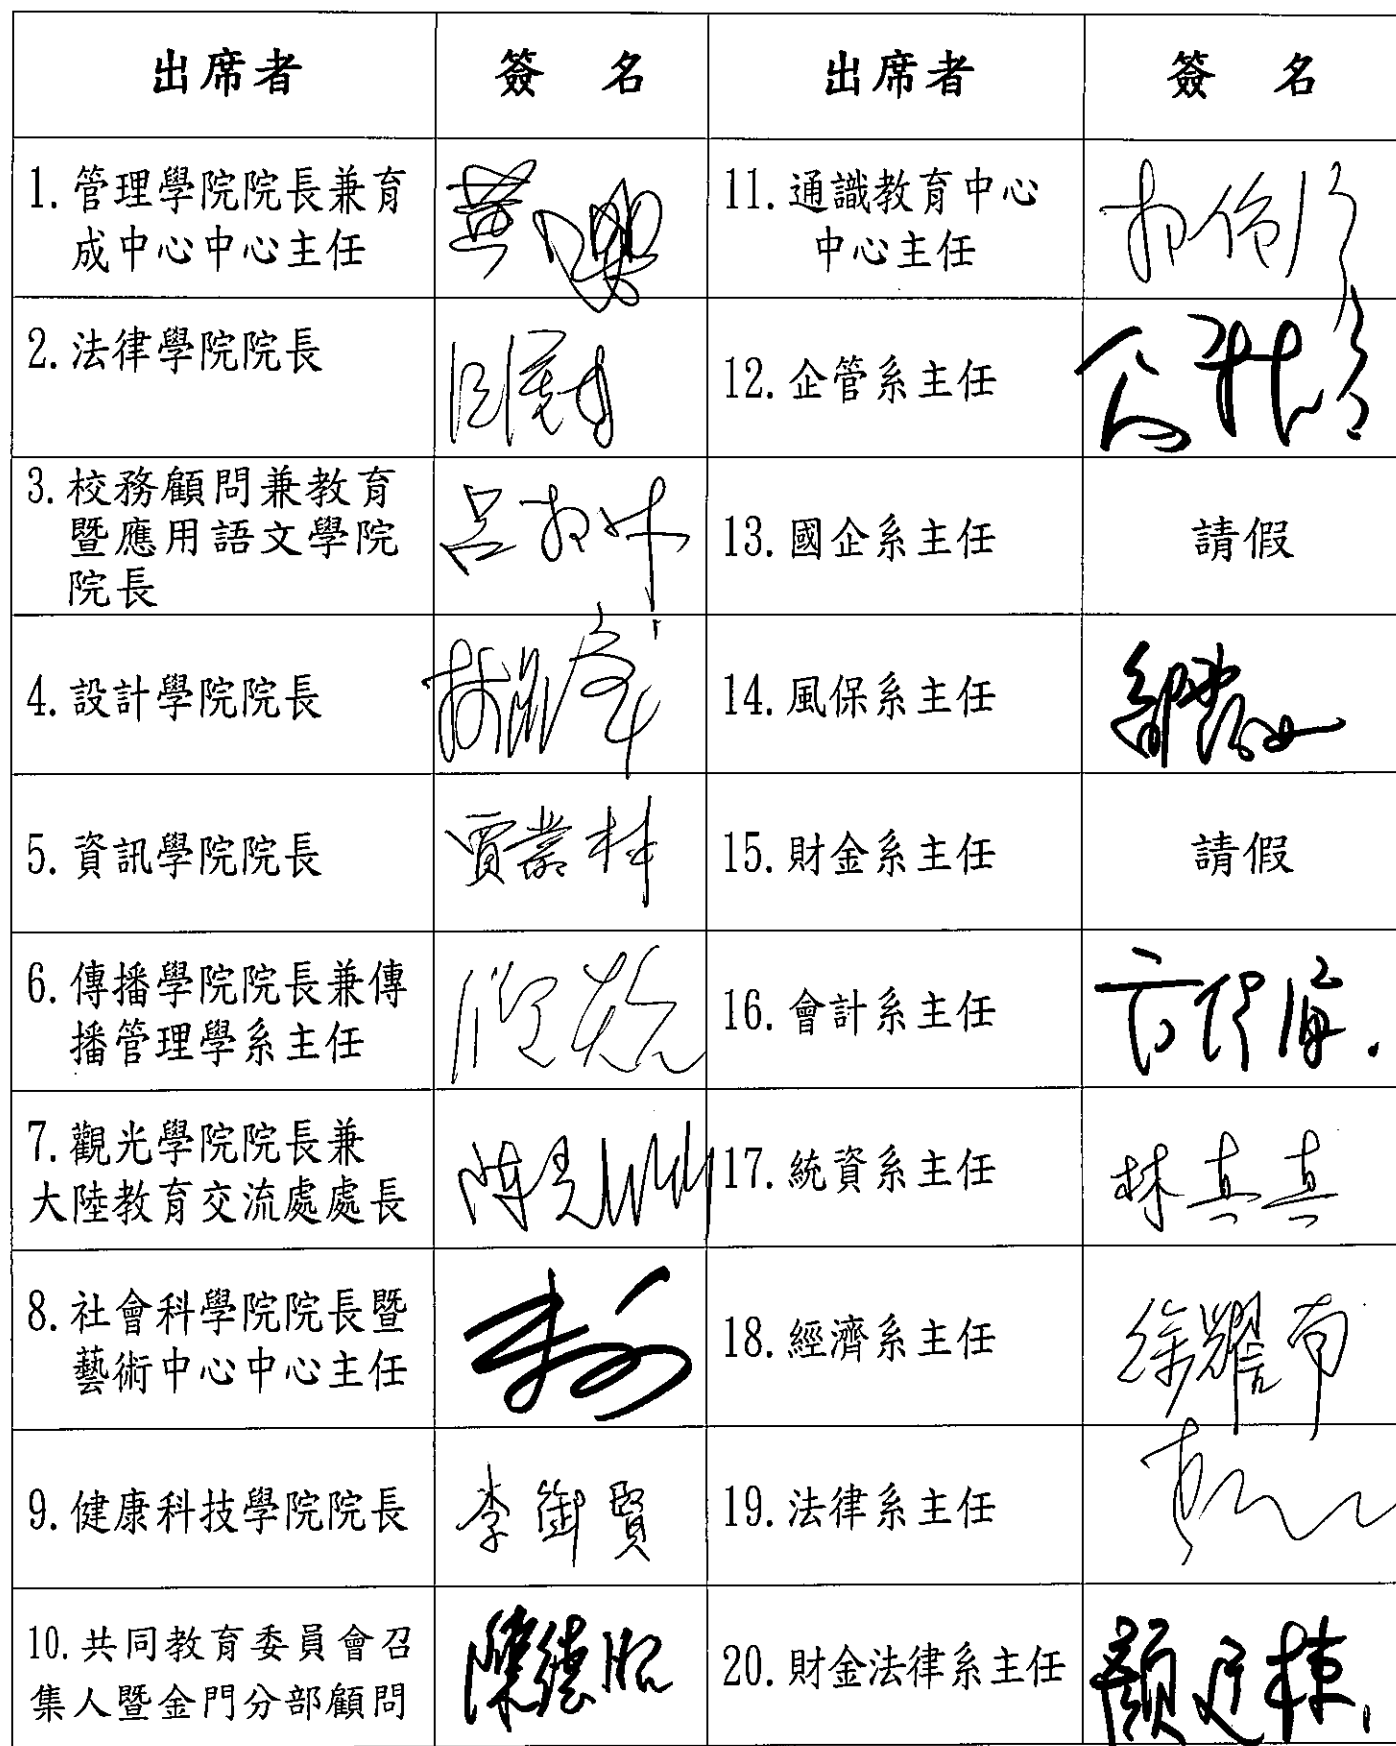 出席者 簽 名 出席者 簽 名
1.管理學院院長兼育
成中心中心主任
11.通識教育中心
中心主任
2.法律學院院長
12.企管系主任
3.校務顧問兼教育
暨應用語文學院
院長
13.國企系主任 請假
4.設計學院院長
14.風保系主任
5.資訊學院院長 賈叢林
15.財金系主任 請假
6.傳播學院院長兼傳
播管理學系主任
16.會計系主任
7.觀光學院院長兼
大陸教育交流處處長
17.統資系主任 林真真
8.社會科學院院長暨
藝術中心中心主任
18.經濟系主任 徐耀南
9.健康科技學院院長 李御賢
19.法律系主任
10.共同教育委員會召
集人暨金門分部顧問
陳德昭
20.財金法律系主任 顏廷棟